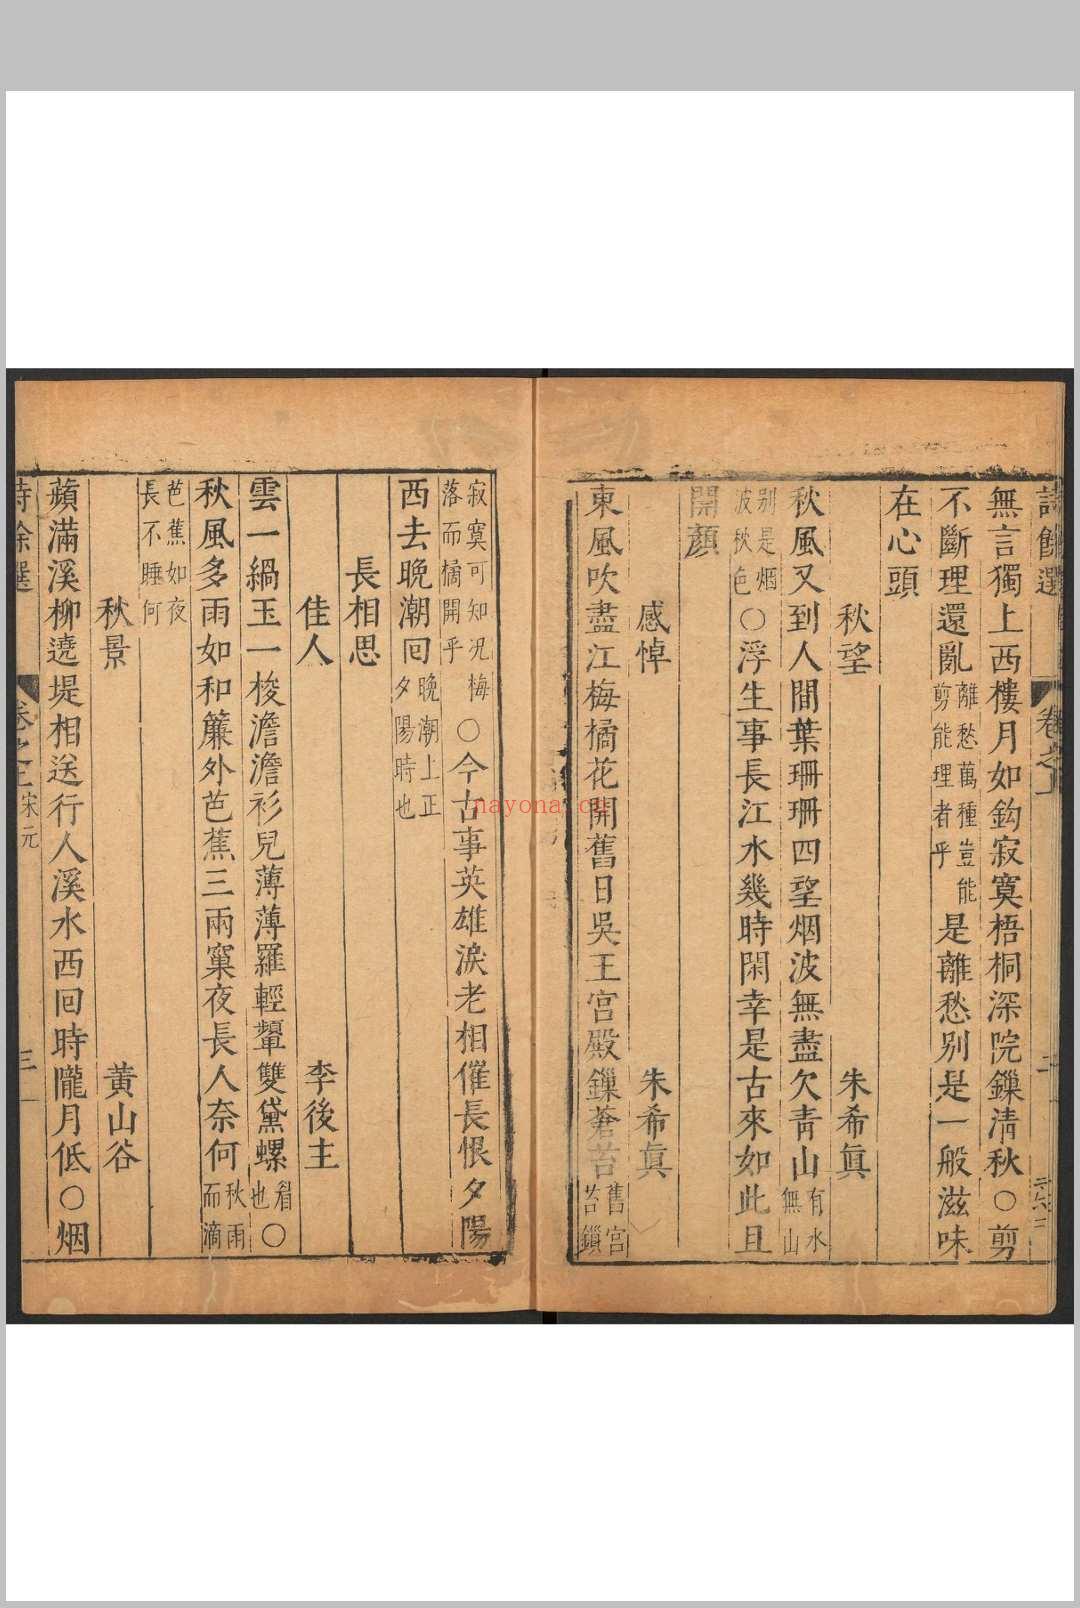 無言獨上西樓月如鈎寂寞梧桐深院鎻清秋〇剪
不斷理還亂離愁萬種豈能剪能理者乎是離愁别是一般滋味
在心頭
秋望 朱希眞
秋風又到人間葉珊珊四望烟波無盡欠青山有水無山
别是烟波秋色〇浮生事長江水幾時閑幸是古來如此且
開顏
感悼 朱希眞
東風吹盡江梅橘花開舊日吳王宮殿鎻蒼苔舊宮苔鎖
寂寞可知况梅落而橘開乎〇今古事英雄淚老相催長恨夕陽
西去晚潮囘晚潮上正夕陽時也
長相思
佳人 李後主
雲一緺玉一梭澹澹衫兒薄薄羅輕顰雙黛螺眉也〇
秋風多雨如和簾外芭蕉三兩窠夜長人奈何秋雨而滴
芭蕉如夜長不睡何
秋景 黄山谷
蘋滿溪柳遶堤相送行人溪水西囘時隴月低〇烟
詩餘選 卷之三 宋元 三
nayona.cn